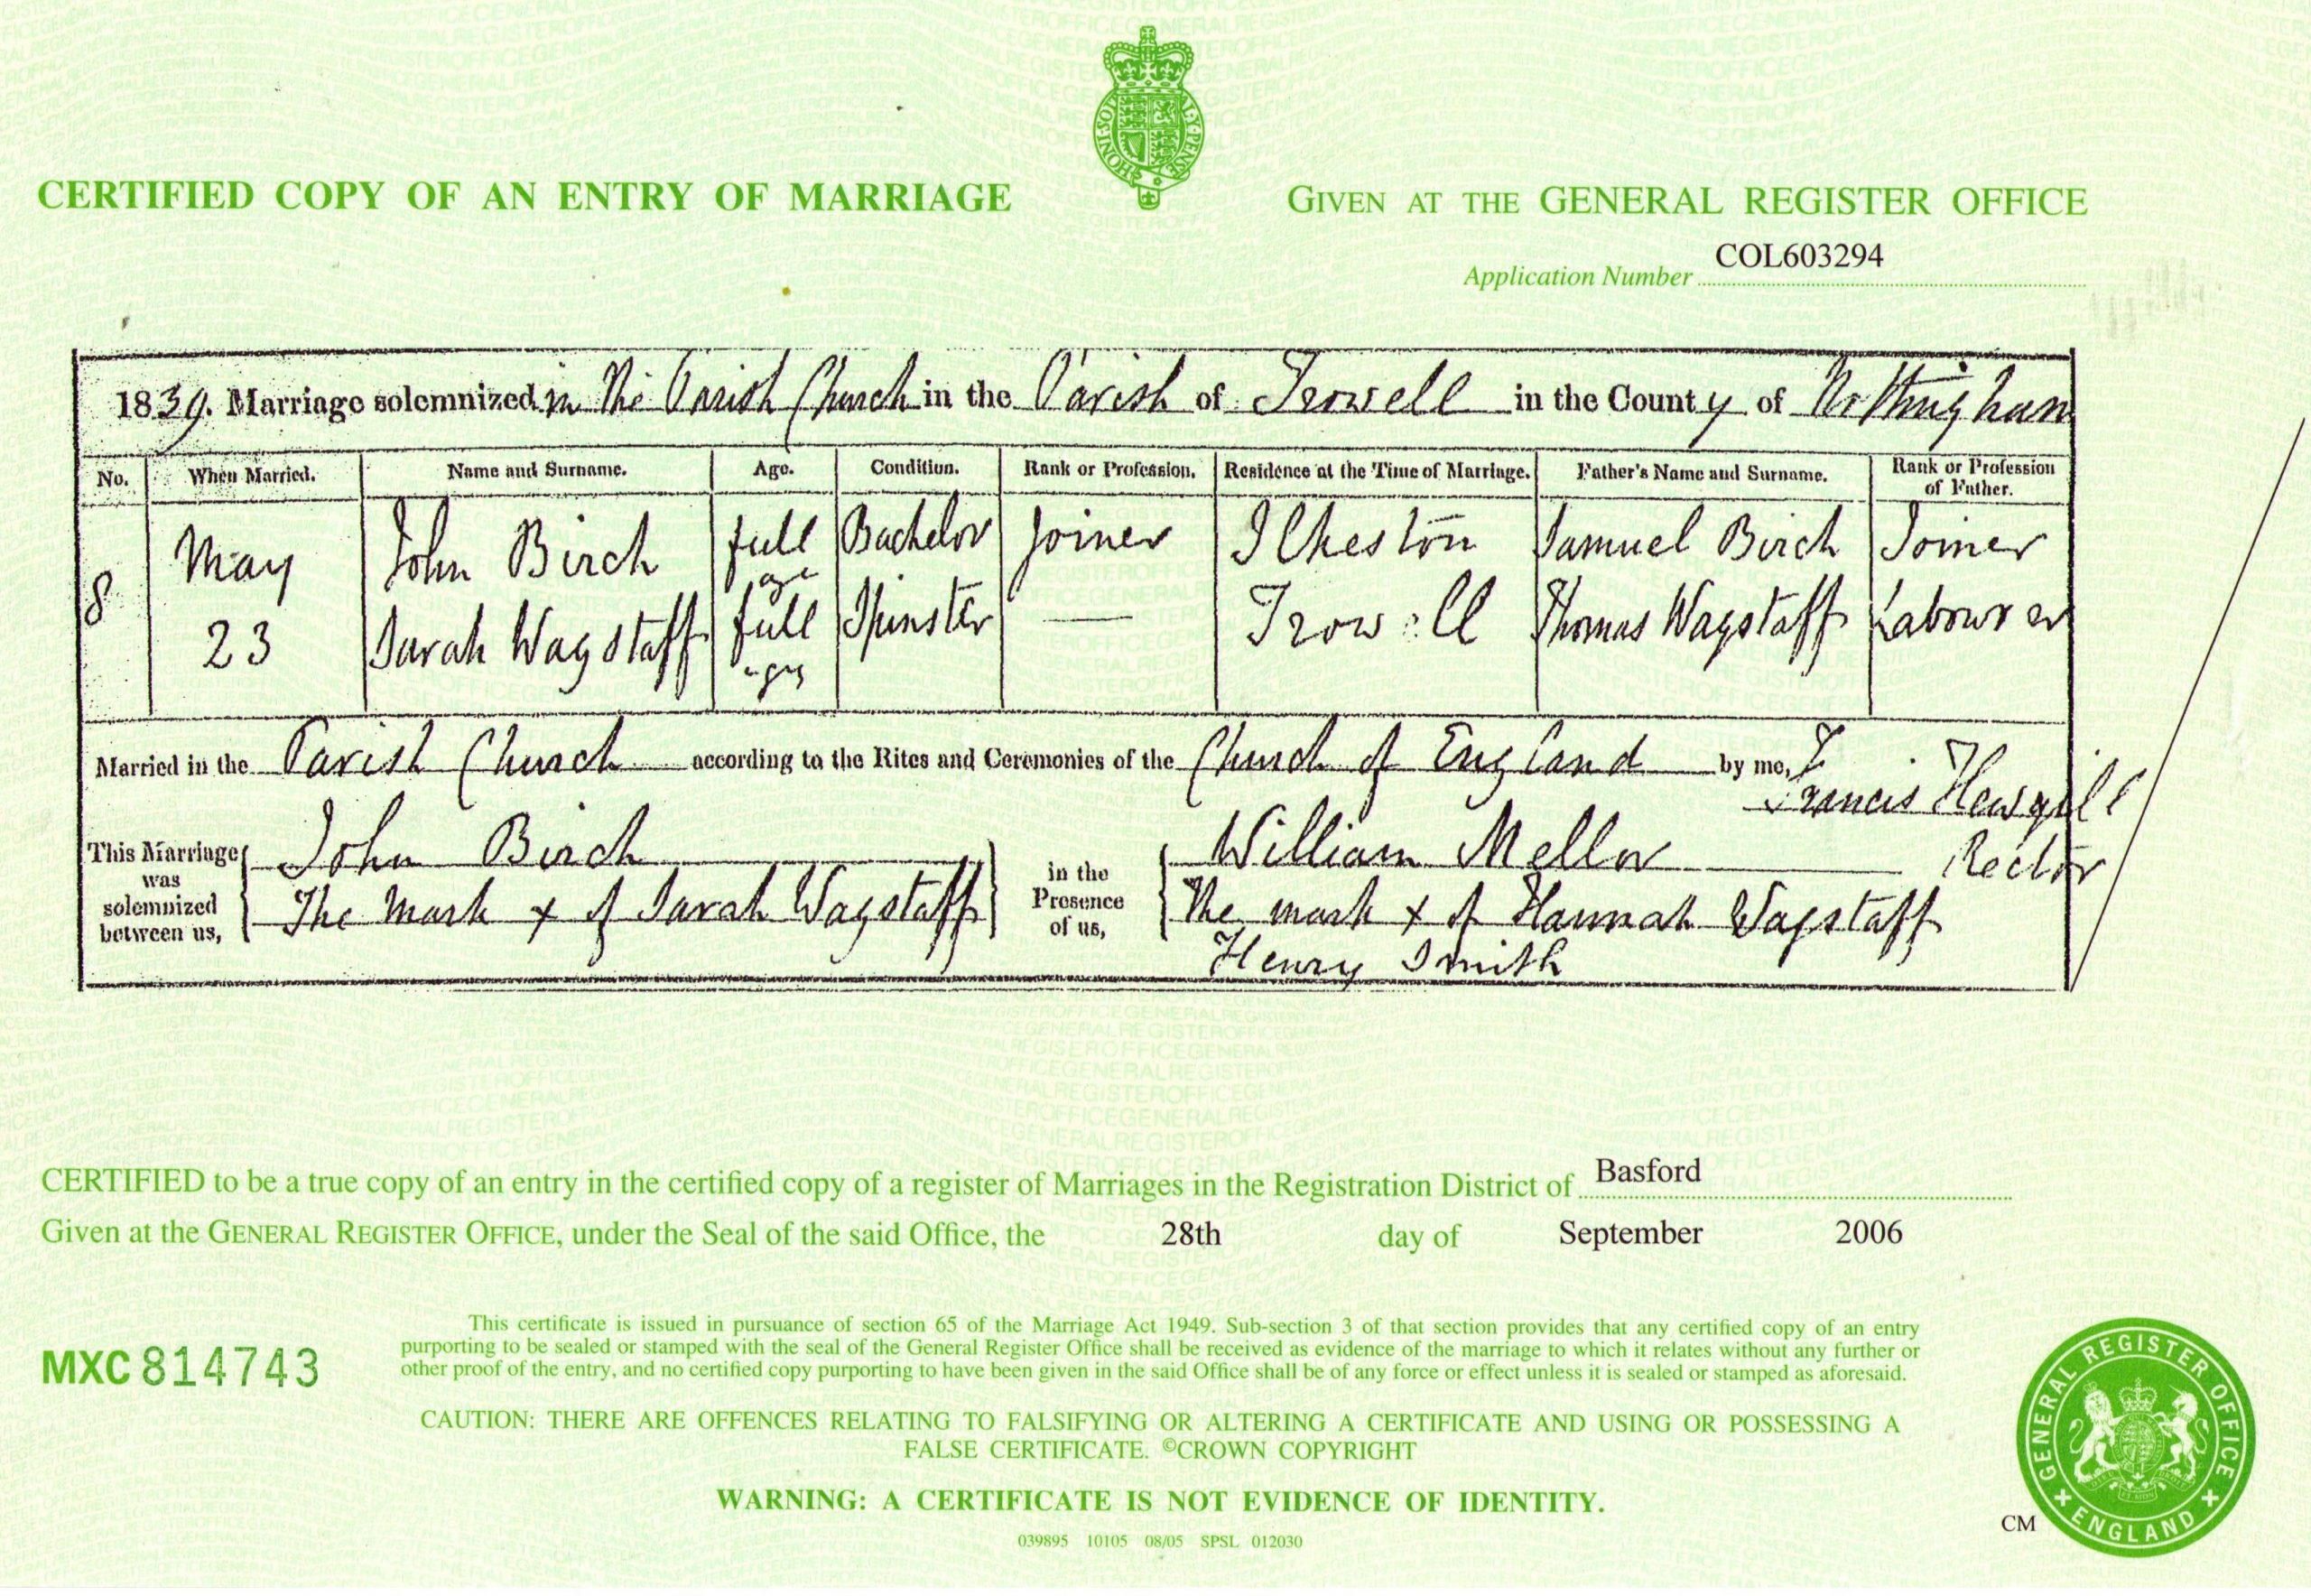 CERTIFIED COPY OF AN ENTRY OF MARRIAGE
GIVEN AT THE GENERAL REGISTER OFFICE
Application Number COL603294
1839. Marriage solemnized in the Parish Church in the Parish of Trowell in the County of Nottingham
No. When Married. Name and Surname. Age. Condition. Rank or Profession. Residence at the Time of Marriage. Father's Name and Surname. Rank or Profession of Father.
8 May 23
John Birch full age Bachelor Joiner Ilkeston Samuel Birch Joiner
Sarah Wagstaff full age Spinster — Trowell Thomas Wagstaff Labourer
Married in the Parish Church according to the Rites and Ceremonies of the Church of England by me,
Francis Hewgill
Rector
This Marriage was solemnized between us,
John Birch
The mark x of Sarah Wagstaff
in the Presence of us,
William Mellor
The mark x of Hannah Wagstaff
Henry Smith
CERTIFIED to be a true copy of an entry in the certified copy of a register of Marriages in the Registration District of Basford
Given at the GENERAL REGISTER OFFICE, under the Seal of the said Office, the 28th day of September 2006
MXC 814743
This certificate is issued in pursuance of section 65 of the Marriage Act 1949. Sub-section 3 of that section provides that any certified copy of an entry
purporting to be sealed or stamped with the seal of the General Register Office shall be received as evidence of the marriage to which it relates without any further or
other proof of the entry, and no certified copy purporting to have been given in the said Office shall be of any force or effect unless it is sealed or stamped as aforesaid.
CAUTION: THERE ARE OFFENCES RELATING TO FALSIFYING OR ALTERING A CERTIFICATE AND USING OR POSSESSING A
FALSE CERTIFICATE. ©CROWN COPYRIGHT
WARNING: A CERTIFICATE IS NOT EVIDENCE OF IDENTITY.
039895 10105 08/05 SPSL 012030
CM
GENERAL REGISTER OFFICE
ENGLAND